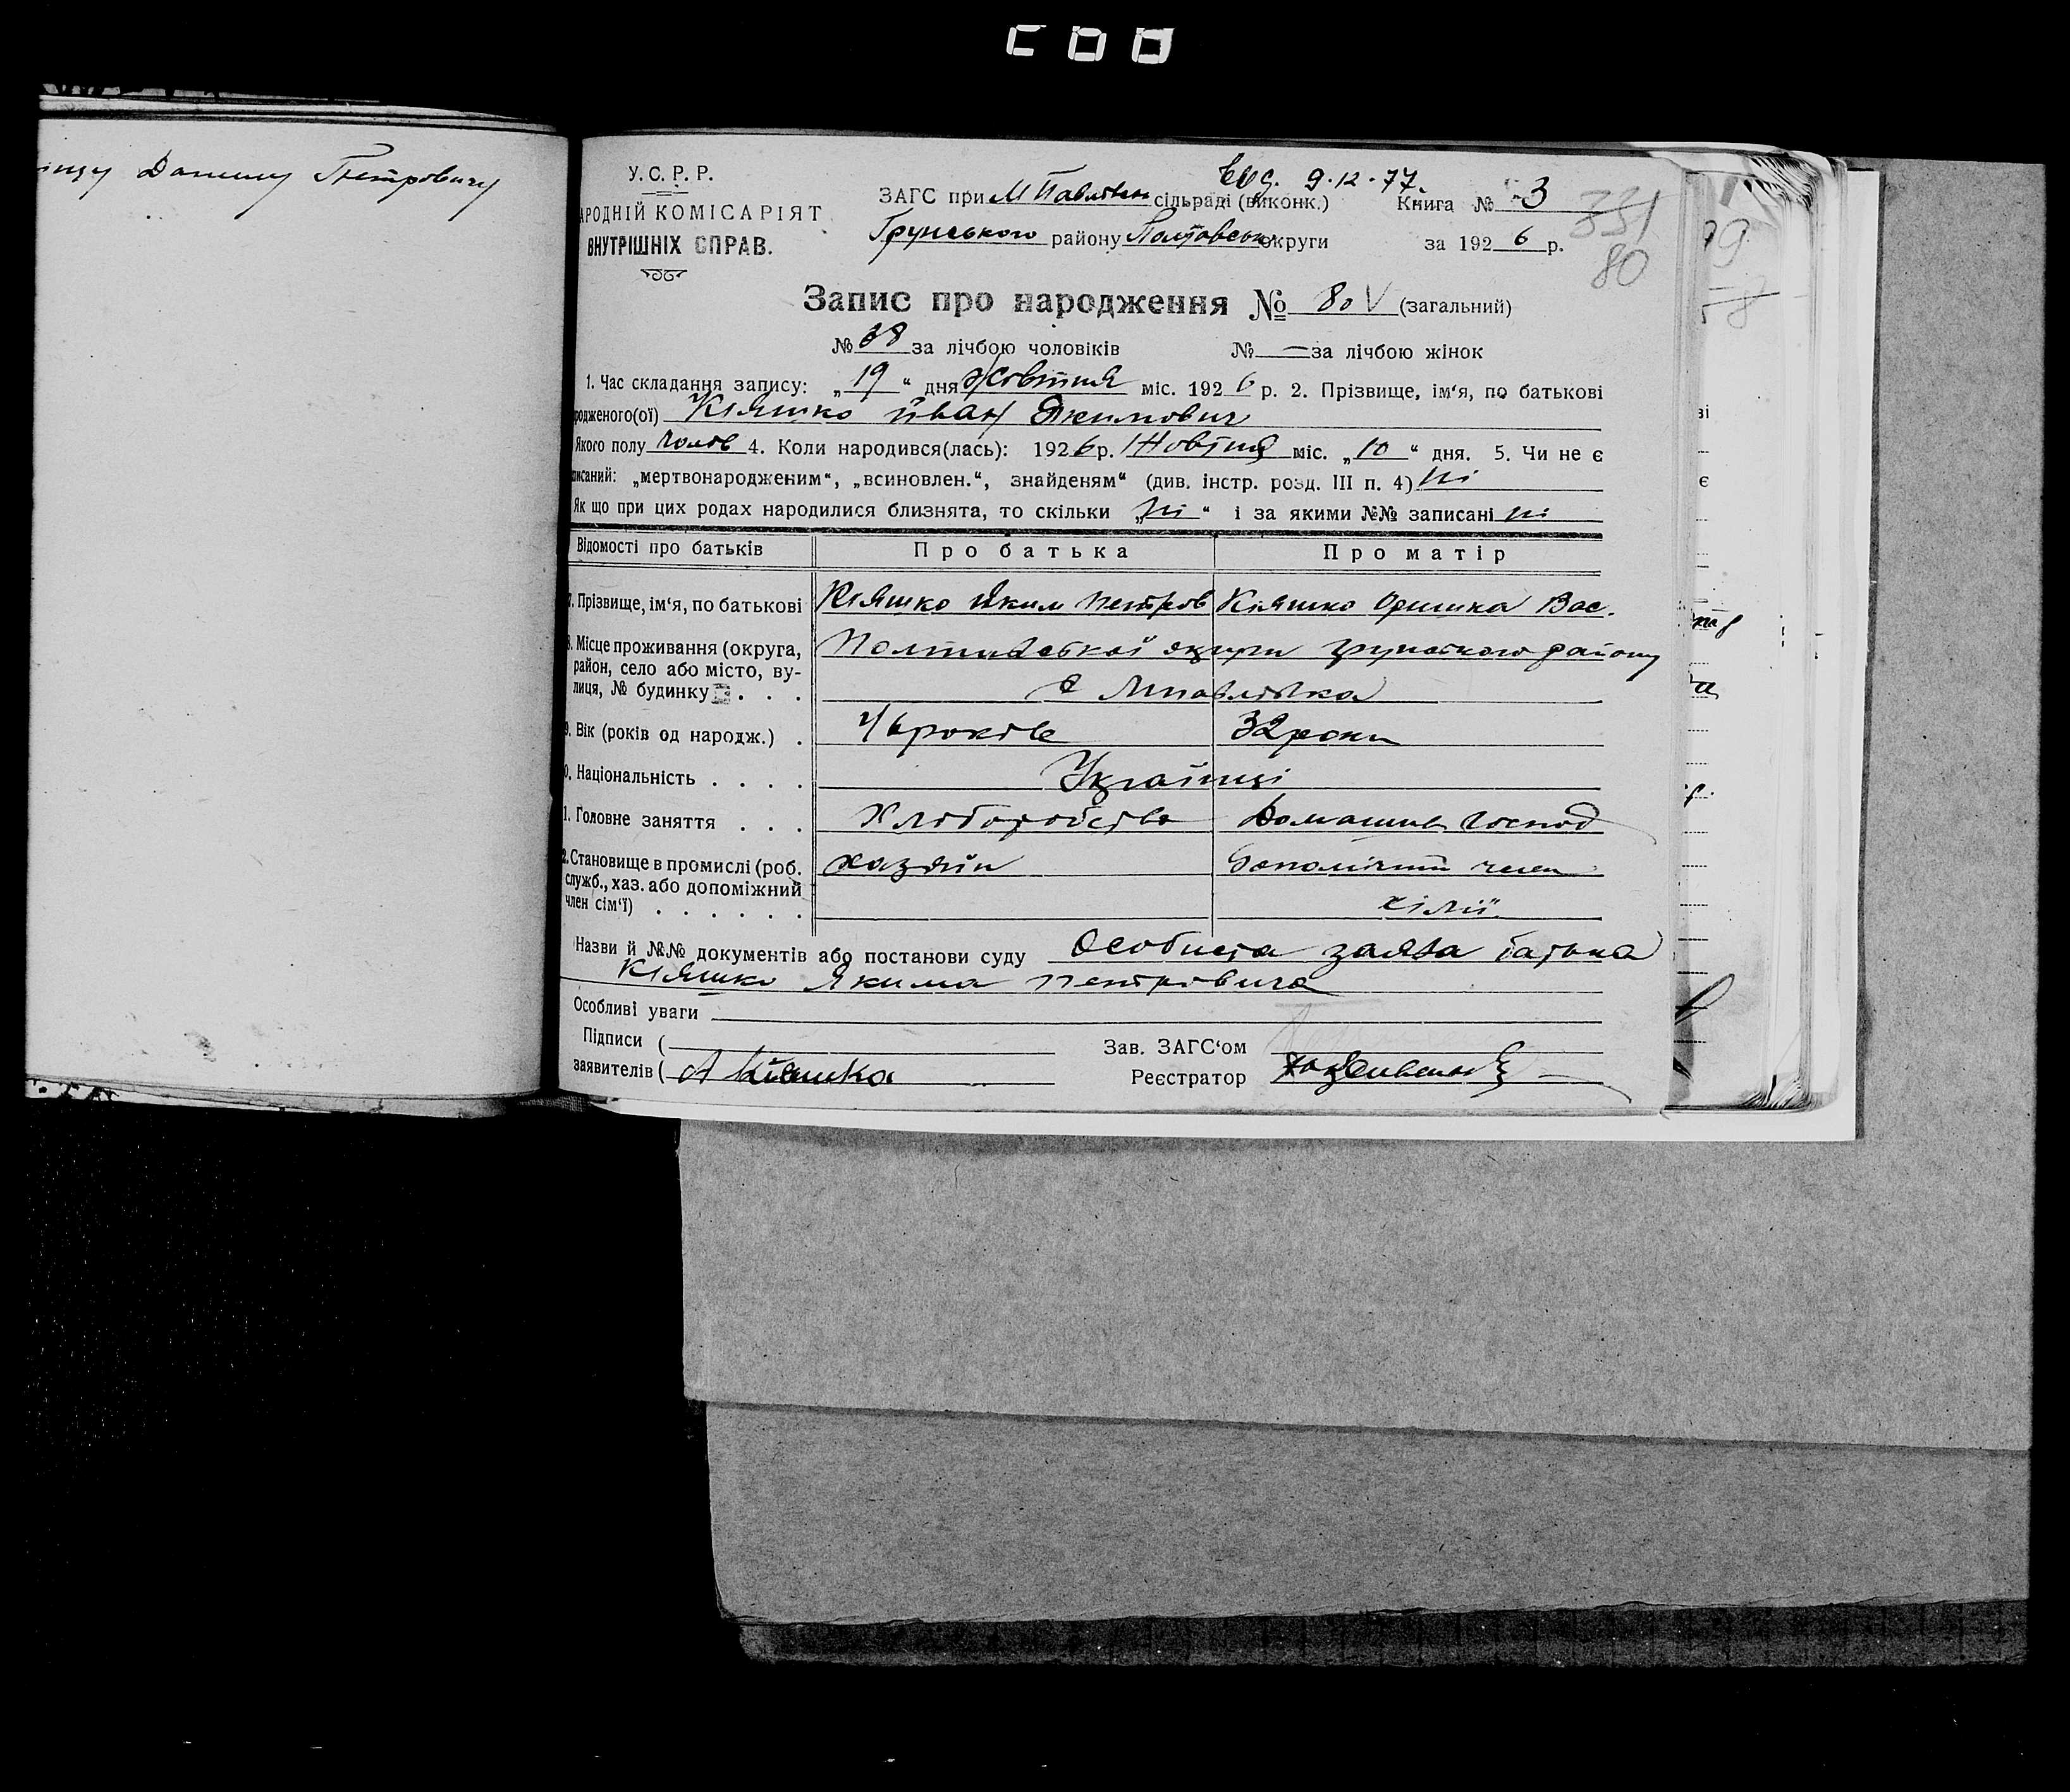 Данилу Петровичу
У.С.Р.Р.
АРОДНІЙ КОМІСАРІЯТ
ВНУТРІШНІХ СПРАВ.
9·12·77.
ЗАГС при М Павлівск сільраді (виконк.) Книга № 3
Грунського району Полтавськ округи за 1926 р.
331
80
Запис про народження № 80 V (загальний)
№ 38 за лічбою чоловіків № — за лічбою жінок
1. Час складання запису: „19“ дня Жовтня міс. 1926 р. 2. Прізвище, ім‘я, по батькові
родженого(ої) Кіяшко Йван Якимович
Якого полу чолов 4. Коли народився(лась): 1926 р. Жовтня міс. „10“ дня. 5. Чи не є
писаний: „мертвонародженим“, „всиновлен.“, знайденям“ (див. інстр. розд. III п. 4) ні
Як що при цих родах народилися близнята, то скільки „ні“ і за якими №№ записані ні
Відомості про батьків Про батька Про матір
7. Прізвище, ім‘я, по батькові Кіяшко Яким Петров Кіяшко Оришка Вас.
8. Місце проживання (округа, Полтавської округи грунського району
район, село або місто, ву-
лиця, № будинку . . . с Мпавлівка
9. Вік (років од народж.) . 46 років 32 роки
0. Національність . . . . Українці
1. Головне заняття . . . Хліборобство Домашнє господ
2. Становище в промислі (роб. хазяїн Допомічний член
служб., хаз. або допоміжний
член сім‘ї) . . . . . . сімії.
Назви й №№ документів або постанови суду Особиста заява батька
Кіяшко Якима Петровича
Особливі уваги
Підписи ( Зав. ЗАГС‘ом
заявителів ( А Кіяшко Реєстратор